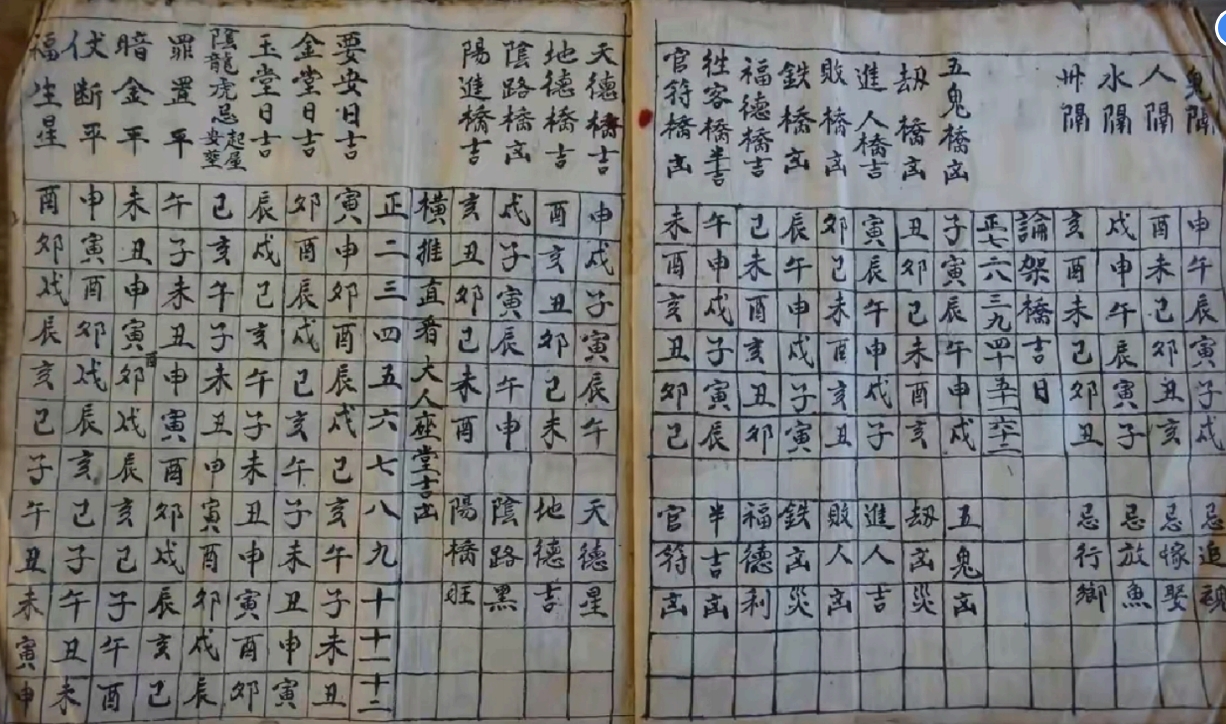 鬼隔 申午辰寅子戌 忌追
人隔 酉未巳卯丑亥 忌嫁娶
水隔 戌申午辰寅子 忌放魚
州隔 亥酉未巳卯丑 忌行鄉
論架橋吉日
正七 二八 三九 四十 五十一 六十二
五鬼橋凶 子寅辰午申戌 五鬼凶
劫橋凶 丑卯巳未酉亥 劫凶災
進人橋吉 寅辰午申戌子 進人吉
敗橋凶 卯巳未酉亥丑 敗人凶
鉄橋凶 辰午申戌子寅 鉄凶災
福德橋吉 巳未酉亥丑卯 福德利
牲客橋半吉 午申戌子寅辰 半吉凶
官符橋凶 未酉亥丑卯巳 官符凶
天德橋吉 申戌子寅辰午 天德星
地德橋吉 酉亥丑卯巳未 地德吉
陰路橋凶 戌子寅辰午申 陰路黑
陽進橋吉 亥丑卯巳未酉 陽橋旺
橫推直看大人座堂吉凶
正二三四五六七八九十十一十二
要安日吉 寅申卯酉辰戌巳亥午子未丑
金堂日吉 卯酉辰戌巳亥午子未丑申寅
玉堂日吉 辰戌巳亥午子未丑申寅酉卯
陰龍虎忌起屋安葬 巳亥午子未丑申寅酉卯戌辰
罪置平 午子未丑申寅酉卯戌辰亥巳
暗金平 未丑申寅酉卯戌辰亥巳子午酉
伏断平 申寅酉卯戌辰亥巳子午丑未
福生星 酉卯戌辰亥巳子午丑未寅申